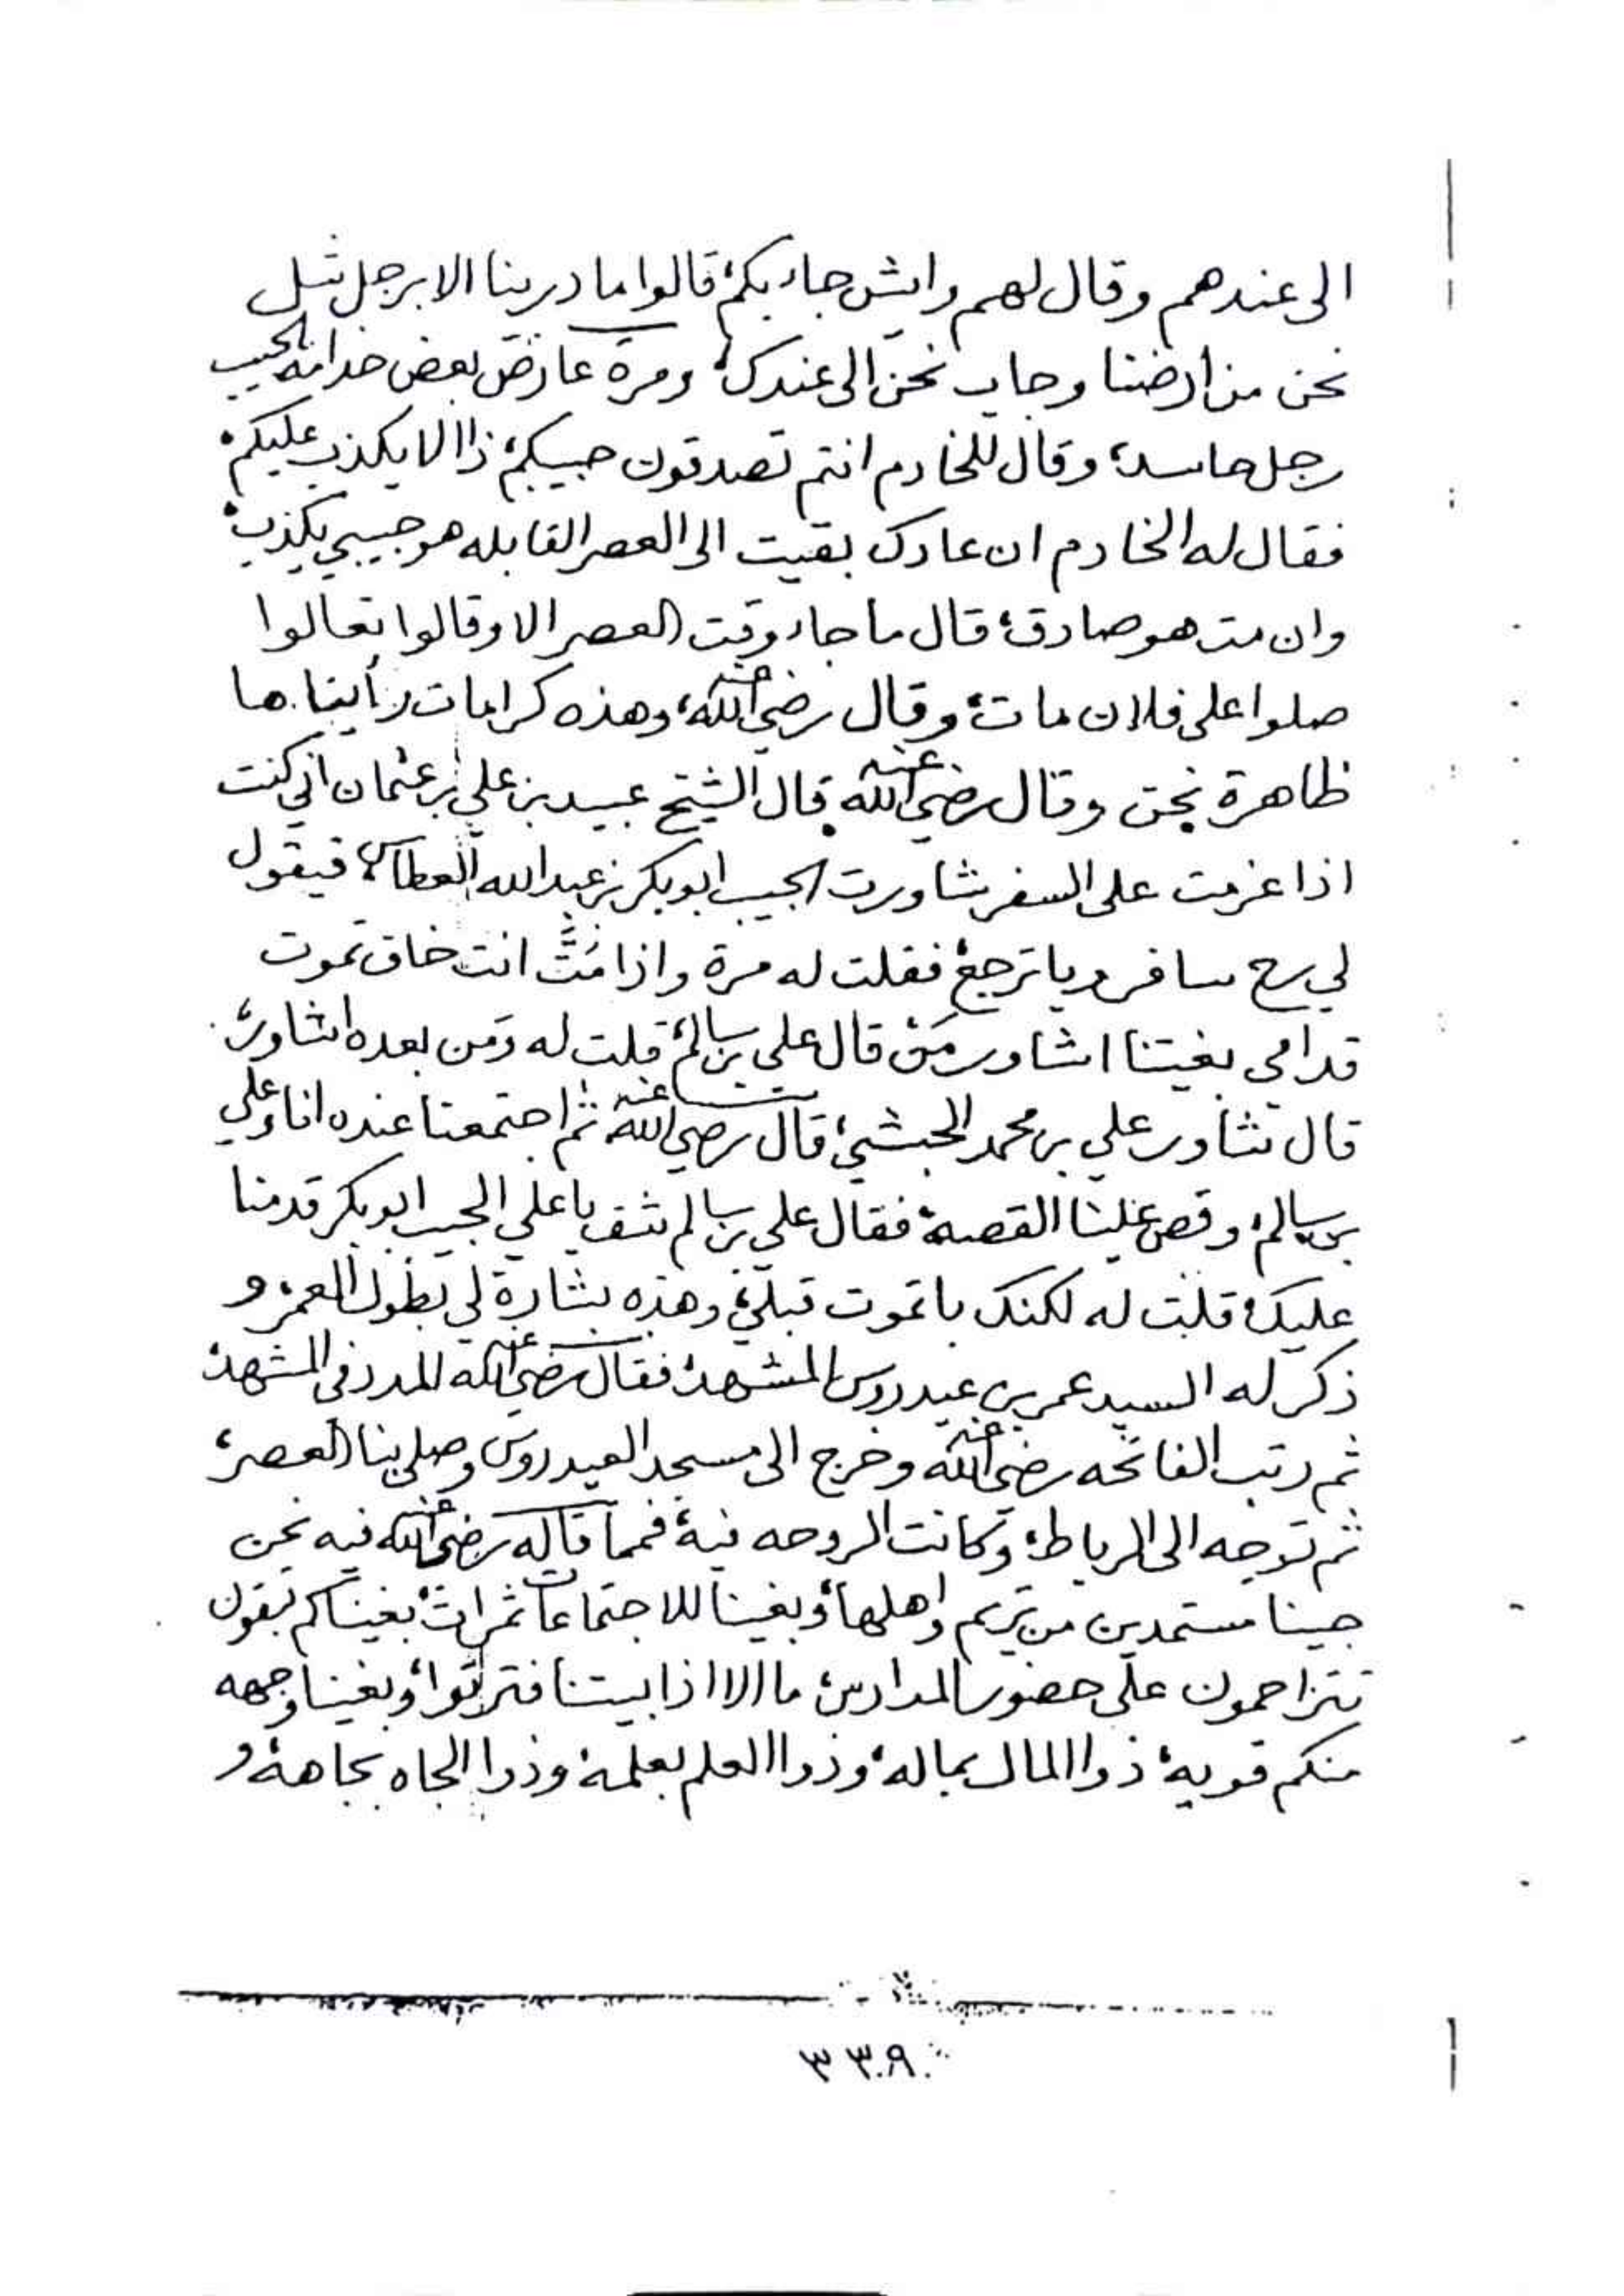 الى عندهم وقال لهم وايش جاء بكم، قالوا ما درينا الا برجل شل
نحن من ارضنا وجاب نحن الى عندك، ومرة عارض بعض خدامة الحبيب
رجل حاسد، وقال للخادم انتم تصدقون حبيبكم، ذا الا يكذب عليكم،
فقال له الخادم ان عادك بقيت الى العصر القابله هو حبيبي يكذب،
وان مت هو صادق، قال ما جاء وقت العصر الا وقالوا تعالوا
صلوا على فلان مات، وقال رضي الله عنه، وهذه كرامات رأيناها
ظاهرة نحن وقال رضي الله عنه قال الشيخ عبيد بن علي بن عثمان اني كنت
اذا عزمت على السفر شاورت الحبيب ابوبكر بن عبدالله العطاس، فيقول
لي رح سافر وبا ترجع، فقلت له مرة واذا مُتَّ انت خاف تموت
قدامي بغيتنا اشاور مَنْ قال علي بن سالم، قلت له ومن بعده اشاور،
قال تشاور علي بن محمد الحبشي، قال رضي الله عنه، ثم اجتمعنا عنده انا وعلي
بن سالم، وقص علينا القصة، فقال علي بن سالم شف يا علي الحبيب ابوبكر قدمنا
عليك، قلت له لكنك با تموت قبلي، وهذه بشارة لي بطول العمر، و
ذكر له السيد عمر بن عيدروس المشهد، فقال رضي الله عنه المدد في المشهد،
ثم رتب الفاتحه رضي الله عنه وخرج الى مسجد العيدروس وصلى بنا العصر،
ثم توجه الى الرباط، وكانت الروحه فيه، فمما قاله رضي الله عنه فيه نحن
جينا مستمدين من تريم واهلها، وبغينا للاجتماعات ثمرات، بغيناكم تبقون
تتزاحمون على حضور المدارس، ما الا اذا بيتنا فترتوا، وبغينا وجهه
منكم قويه، ذوا المال بماله، وذوا العلم بعلمه، وذوا الجاه بجاهه، و
٣٣٩